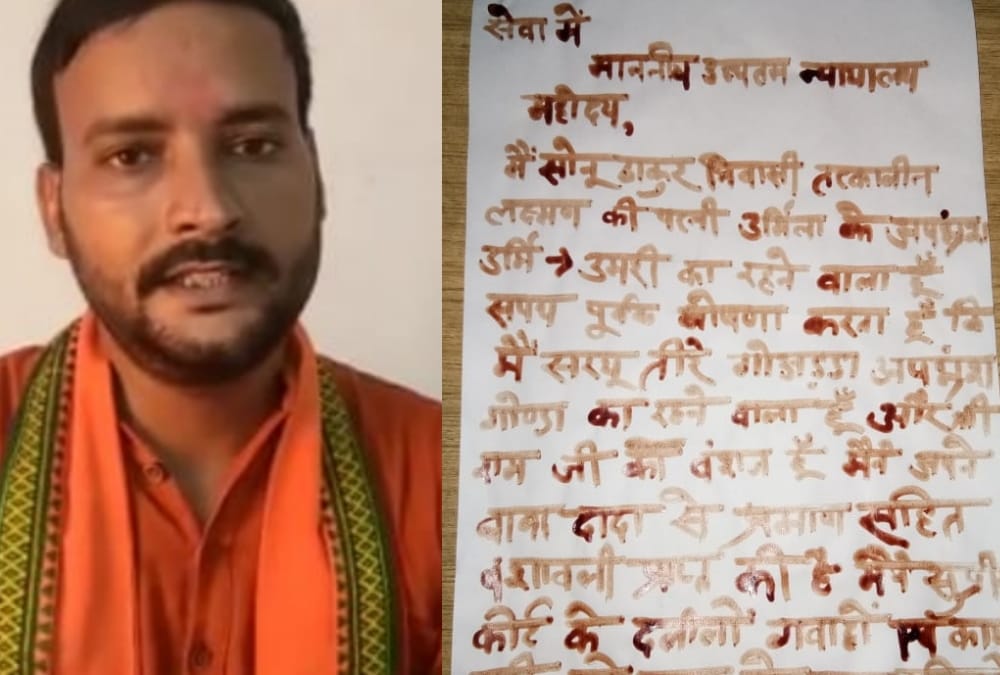 सेवा में
माननीय उच्चतम न्यायालय
महोदय,
मैं सोनू ठाकुर निवासी तत्कालीन
लक्ष्मण की पत्नी उर्मिला के अपभ्रंश
उर्मि → उमरी का रहने वाला हूँ
सपथ पूर्वक घोषणा करता हूँ कि
मैं सरयू तीरे गोडाड़डा अपभ्रंश
गोण्डा का रहने वाला हूँ और श्री
राम जी का वंशज हूँ मैंने अपने
बाबा दादा से प्रमाण सहित
वंशावली प्राप्त की है मैंने सुप्री
कोर्ट के दलीलों गवाहों एवं का